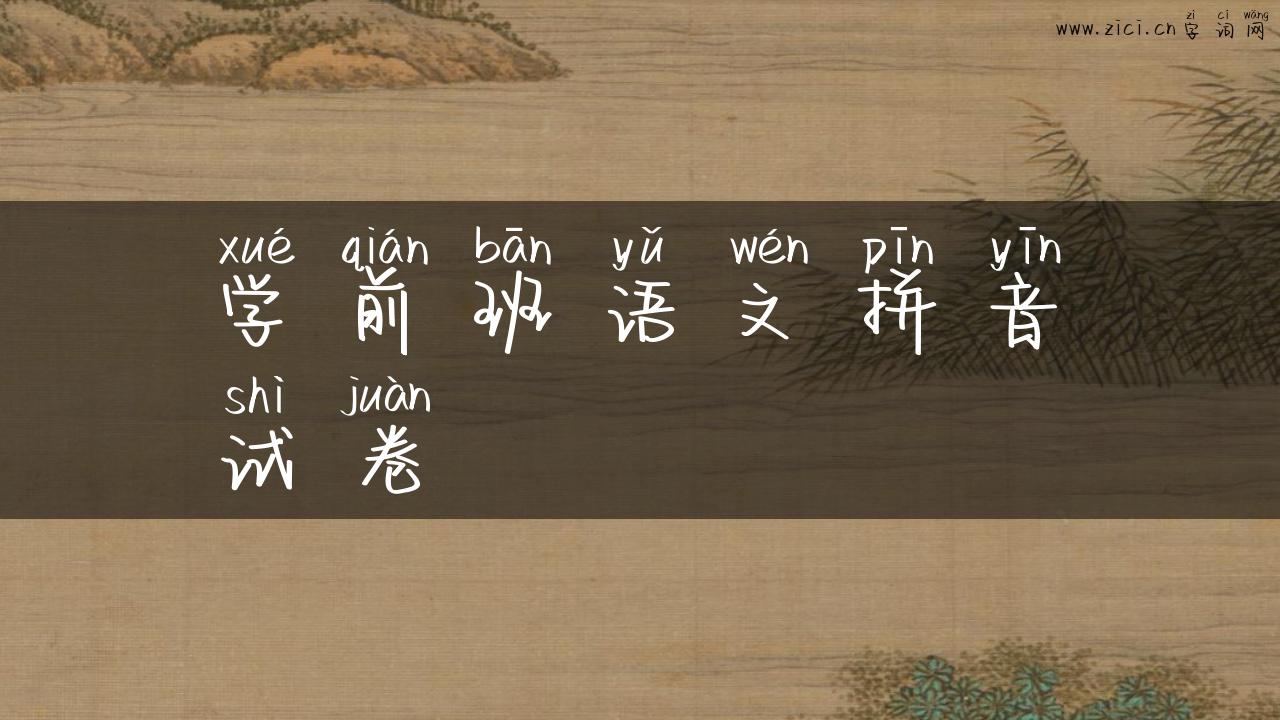 zì cí wǎng
www.zici.cn 字词网
xué qián bān yǔ wén pīn yīn
学前班语文拼音
shì juàn
试卷